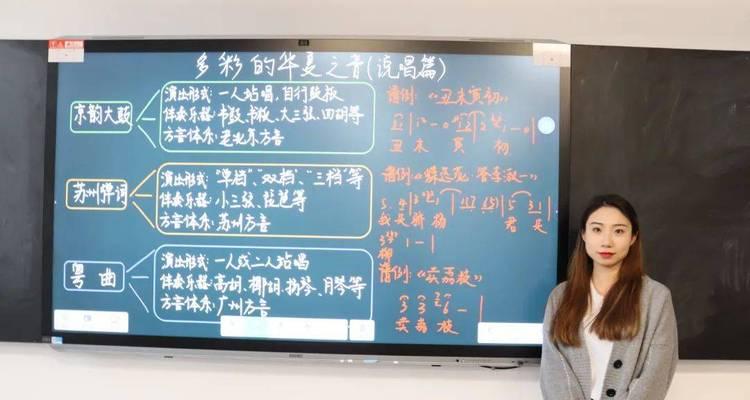 多彩的华夏之音(说唱篇)
京韵大鼓
演出形式:一人站唱,自行敲板
伴奏乐器:书鼓、书板、大三弦、四胡等
方言体系:老北京方音
苏州弹词
演出形式:"单档"、"双档"、"三档"等
伴奏乐器:小三弦、琵琶等
方言体系:苏州方音
粤曲
演出形式:一人或二人站唱
伴奏乐器:高胡、椰胡、扬琴、月琴等
方言体系:广州方音
谱例:《丑末寅初》
丑末 寅 初
谱例:《蝶恋花·答李淑一》
我是骄杨 君是
柳
谱例:《卖荔枝》
3 3 2 6 -
卖荔枝